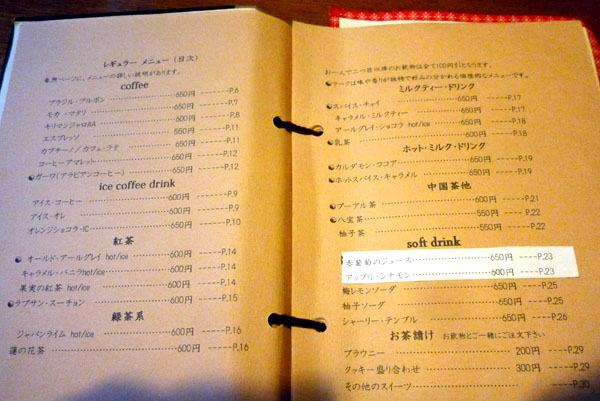 レギュラー メニュー (目次)
※次ページに、メニューの詳しい説明があります。
coffee
ブラジル・ブルボン 650円 P.6
モカ・マタリ 650円 P.7
キリマンジャロAA 600円 P.8
エスプレッソ 550円 P.11
カプチーノ/カフェ・ラテ 650円 P.11
コーヒーアマレット 650円 P.12
ガーワ(アラビアンコーヒー) 650円 P.12
ice coffee drink
アイス・コーヒー 600円 P.9
アイス・オレ 600円 P.9
オレンジショコラ・IC 650円 P.10
紅茶
オールド・アールグレイ hot/ice 600円 P.14
キャラメル・バニラ hot/ice 600円 P.14
果実の紅茶 hot/ice 600円 P.14
ラプサン・スーチョン 600円 P.15
緑茶系
ジャパンライム hot/ice 600円 P.16
蓮の花茶 600円 P.16
お一人で二つ目以降のお飲物は全て100円引となります。
マークは味や香りが独特で好みの分かれる個性的なメニューです。
ミルクティー・ドリンク
スパイス・チャイ 650円 P.17
キャラメル・ミルクティー 650円 P.17
アールグレイ・ショコラ hot/ice 650円 P.18
乳茶 600円 P.18
ホット・ミルク・ドリンク
カルダモン・ココア 650円 P.19
ホットスパイス・キャラメル 650円 P.19
中国茶他
プーアル茶 600円 P.21
八宝茶 550円 P.22
柚子茶 550円 P.22
soft drink
赤葡萄のジュース 650円 P.23
アップル・シナモン 600円 P.23
梅レモンソーダ 650円 P.25
柚子ソーダ 650円 P.25
シャーリー・テンプル 650円 P.26
お茶請け お飲物とご一緒にご注文下さい
ブラウニー 200円 P.29
クッキー盛り合わせ 300円 P.29
その他のスイーツ P.30